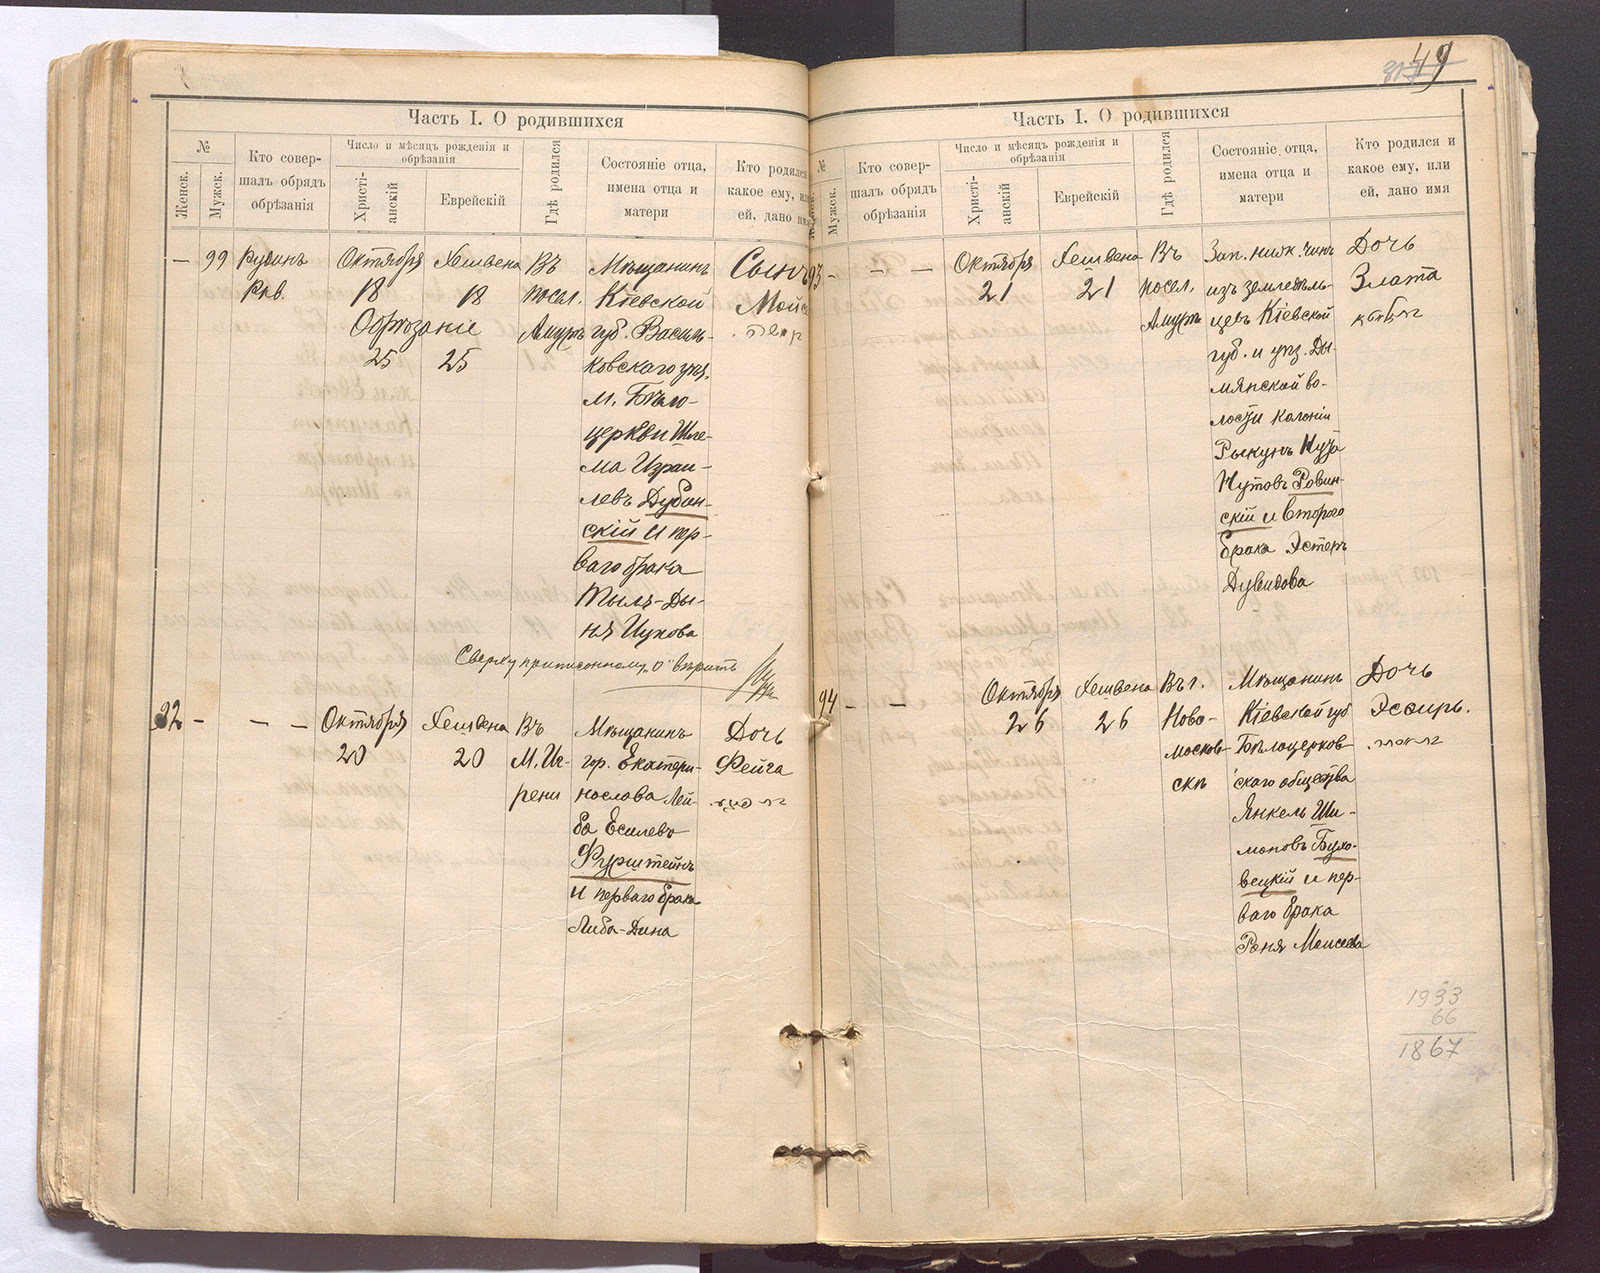 49
Часть I. О родившихся
№
Женск.
Мужск.
Кто совер-
шалъ обрядъ
обрѣзанія
Число и мѣсяцъ рожденія и
обрѣзанія
Христі-
анскій
Еврейскій
Гдѣ родился
Состояніе отца,
имена отца и
матери
Кто родился
какое ему, или
ей, дано имя
— 99
Рубинъ
Рав.
Октября
18
Обрѣзаніе
25
Хешвена
18
25
Въ
посел.
Амуръ
Мѣщанинъ
Кіевской
губ. Василь-
ковскаго уѣз.
м. Бѣло-
церкви Шле-
ма Изра-
левъ Дубин-
скій и пер-
ваго брака
Ициковa
Сынъ
Сверху приписанному „о" вѣрить
92 —
— —
Октября
20
Хешвена
20
Въ
М. Иг-
рени
Мѣщанинъ
гор. Екатери-
нослава Лей-
ба Еселевъ
Фурштейнъ
и перваго брака
Либа-Дина
Дочь
Фейга
Часть I. О родившихся
№
Мужск.
Кто совер-
шалъ обрядъ
обрѣзанія
Число и мѣсяцъ рожденія и
обрѣзанія
Христі-
анскій
Еврейскій
Гдѣ родился
Состояніе отца,
имена отца и
матери
Кто родился и
какое ему, или
ей, дано имя
93 —
— —
Октября
21
Хешвена
21
Въ
посел.
Амуръ
Зап. нижн. чинъ
изъ земледѣль-
цевъ Кіевской
губ. и уѣз. Ды-
мянской во-
лости колоніи
Рыкунъ
Нутовъ Ровин-
скій и втораго
брака Эстеръ
Дувидова
Дочь
Злата
94 —
—
Октября
26
Хешвена
26
Въ г.
Ново-
москов-
скѣ
Мѣщанинъ
Кіевской губ
Бѣлоцерков-
скаго общества
Янкель Ши-
моновъ Бухо-
вецкій и пер-
ваго брака
Реня Моисеева
Дочь
Эсѳирь.
1933
66
1867